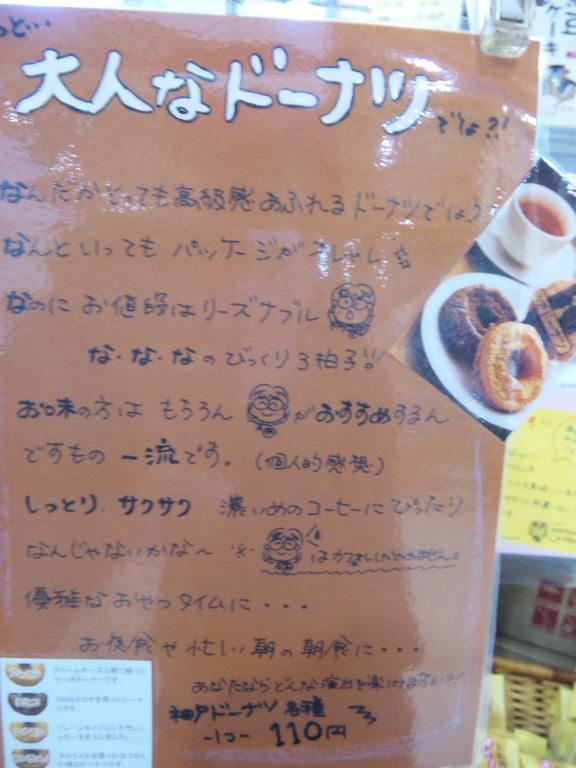 っと…
大人なドーナツ
でしょ?!
なんだかとっても高級感あふれるドーナツでしょう
なんといっても パッケージがオシャレ
なのに お値段はリーズナブル
な・な・なのびっくり3拍子!!
お味の方は もちろん がおすすめするん
ですもの 一流です。(個人的感想)
しっとり、サクサク 濃いめのコーヒーにぴったり
なんじゃないかな〜 ※ はカフェオレしかのめません。
優雅なおやつタイムに・・・
お夜食や忙しい朝の朝食に・・・
あなたならどんな演出を楽しみますか
神戸ドーナツ 各種
一コ 110円
クリームチーズと卵で練った
ケーキドーナツです。
100%カカオを使ったドーナ
ツです。
プレーンタイプにシナモンシ
ュガーをまぶしました。
キャラメルを使ったなつかし